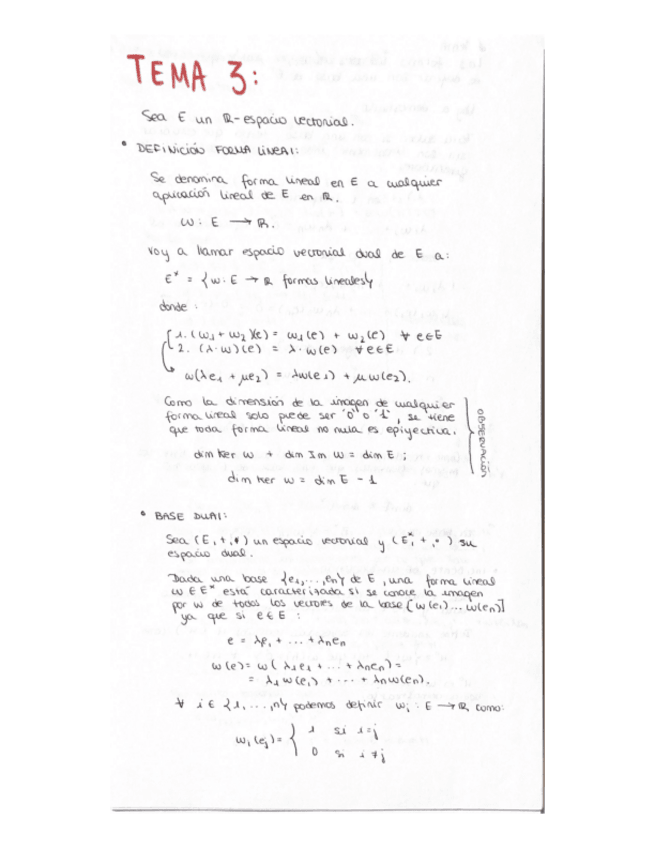 TEMA 3:
Sea E un ℝ-espacio vectorial.
• DEFINICIÓN FORMA LINEAL:
Se denomina forma lineal en E a cualquier
aplicación lineal de E en ℝ.
ω: E → ℝ.
Voy a llamar espacio vectorial dual de E a:
E* = {ω: E → ℝ formas lineales}
donde:
1. (ω1 + ω2)(e) = ω1(e) + ω2(e) ∀ e∈E
2. (λ·ω)(e) = λ·ω(e) ∀ e∈E
ω(λe1 + μe2) = λω(e1) + μω(e2).
Como la dimensión de la imagen de cualquier
forma lineal solo puede ser "0" o "1", se tiene
que toda forma lineal no nula es epiyectiva.
OBSERVACIÓN
dim ker ω + dim Im ω = dim E;
dim ker ω = dim E - 1
• BASE DUAL:
Sea (E, +, •) un espacio vectorial y (E*, +, •) su
espacio dual.
Dada una base {e1,...,en} de E, una forma lineal
ω ∈ E* está caracterizada si se conoce la imagen
por ω de todos los vectores de la base [ω(e1)...ω(en)]
ya que si e∈E:
e = λe1 + ... + λnen
ω(e) = ω(λ1e1 + ... + λnen) =
= λ1ω(e1) + ... + λnω(en).
∀ i ∈ {1,...,n} podemos definir ωi: E → ℝ como:
ωi(ej) = { 1 si i=j
0 si i≠j